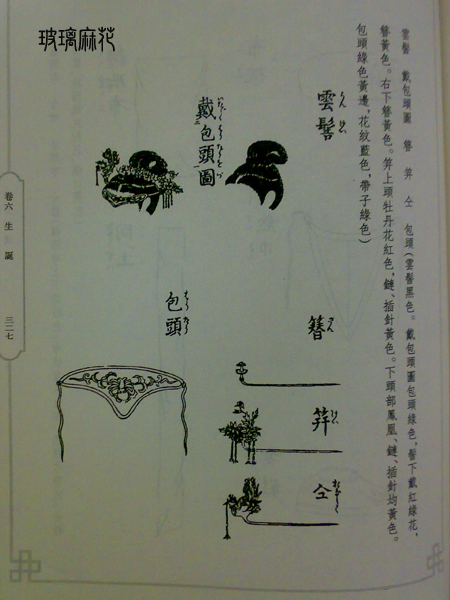 玻璃麻花
雲髻 戴包頭圖 簪 笄 仝 包頭(雲髻黑色。戴包頭圖包頭綠色,髻下戴紅綠花,
簪黃色。右下簪黃色。笄上頭牡丹花紅色,鏈、插針黃色。下頭部鳳凰、鏈、插針均黃色。
包頭綠色黃邊,花紋藍色,帶子綠色)
雲髻
戴包頭圖
簪
笄
仝
包頭
卷六 生誕 三二七